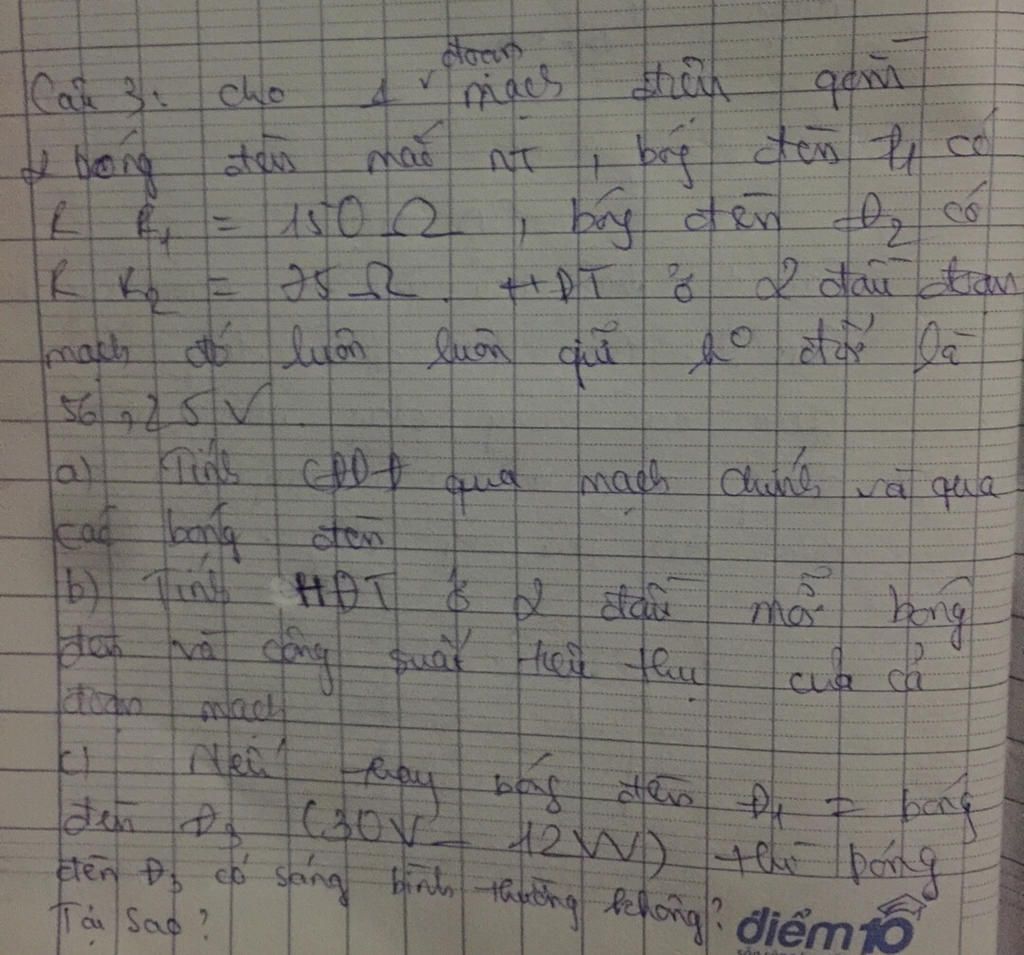 Câu 3: cho 1 đoạn mạch điện gồm
2 bóng đèn mắc NT, bóng đèn Đ1 có
R R1 = 150 Ω, bóng đèn Đ2 có
R R2 = 75 Ω. HĐT ở 2 đầu đoạn
mạch đó luôn luôn giữ ko đổi là
56,25 V.
a) Tính CĐDĐ qua mạch chính và qua
các bóng đèn
b) Tính HĐT ở 2 đầu mỗi bóng
đèn và công suất tiêu thụ của cả
đoạn mạch
c) Nếu thay bóng đèn Đ1 = bóng
đèn Đ3 (30V - 12W) thì bóng
đèn Đ3 có sáng bình thường không?
Tại sao?
điểm10